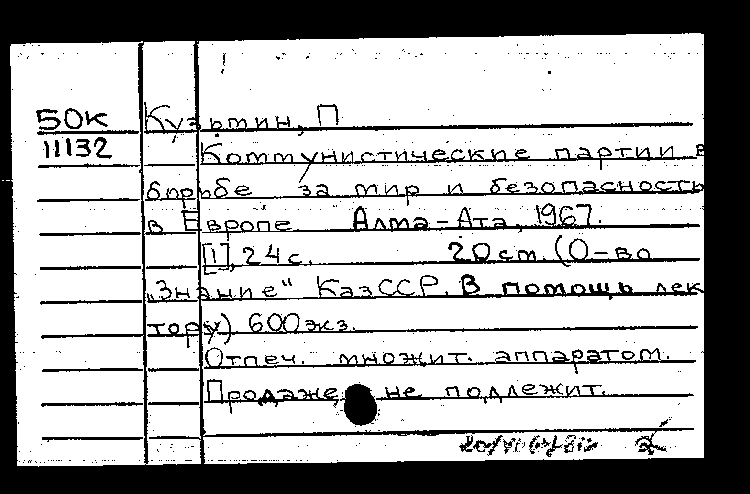 50К Кузьмин, П
11132 Коммунистические партии в
борьбе за мир и безопасность
в Европе Алма-Ата, 1967.
[1], 24 с. 20 ст. (О-во
„Знание" КазССР. В помощь лек
тору) 600 экз.
Отпеч. множит. аппаратом.
Продаже не подлежит.